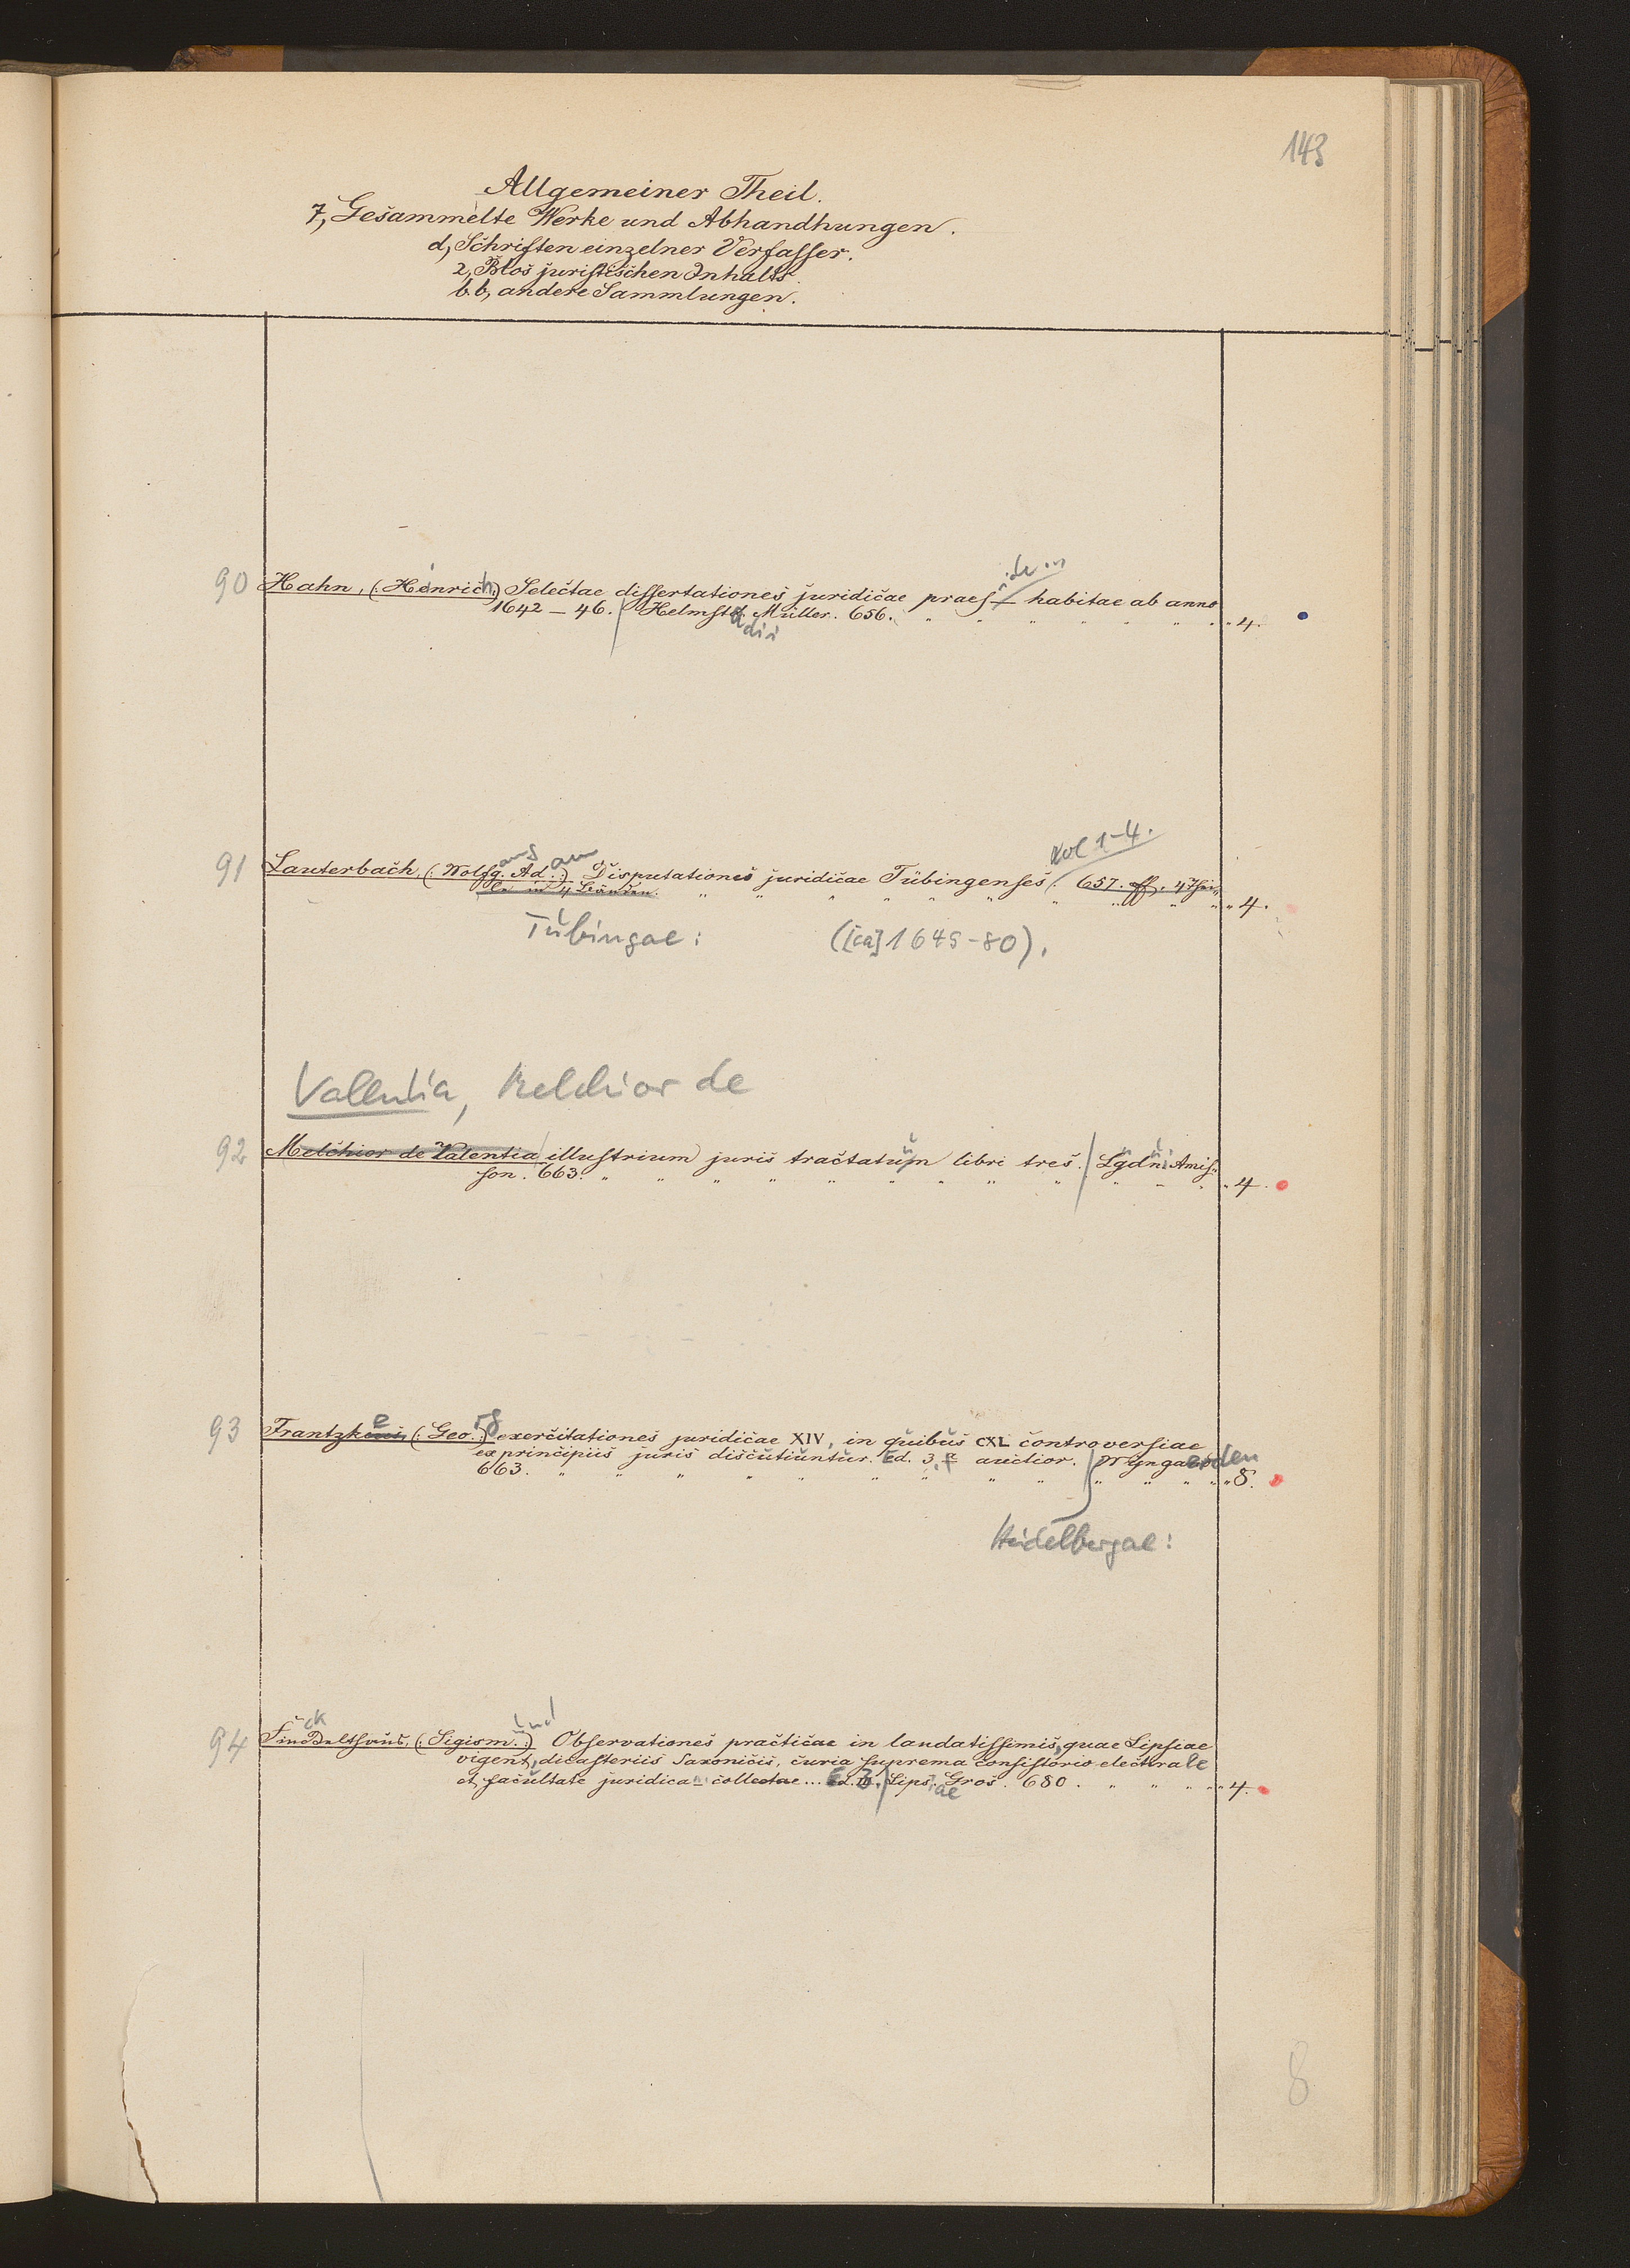 143
Allgemeiner Theil.
7, Gesammelte Werke und Abhandhungen.
d, Schriften einzelner Verfasser.
2, Blos juristischen Inhalts
bb, andere Sammlungen.
90 Hahn, (: Heinrich:) Selectae dissertationes juridicae praeside in habitae ab anno
1642 – 46. / Helmstadii Müller. 656. " " " " " " " " 4.
91 Lauterbach, (: Wolfgang. Adam:) Disputationes juridicae Tübingenses (: 657. ff.
in 4 Bänden. " " " " " " " " " " 4.
Vol 1-4.
Tubingae: ([ca] 1645-80).
Valentia, Melchior de
92 Melchior de Valentia illustrium juris tractatum libri tres. / Lgdni Amis-
son. 663. " " " " " " " " " " " " 4.
93 Frantzke (: Georg:) exercitationes juridicae XIV, in quibus CXL controversiae
ex principiis juris discutiuntur. Ed. 3. auctior. / Wyngaerden
663. " " " " " " " " " " " " 8.
Heidelbergae:
94 Finckelthaus, (: Sigismund:) Observationes practicae in laudatissimis, quae Lipsiae
vigent, dicasteriis Saxonicis, curia suprema consistorio electorale
et facultate juridica collectae... Ed. 3. / Lipsiae Gros. 680. " " " " " 4.
8